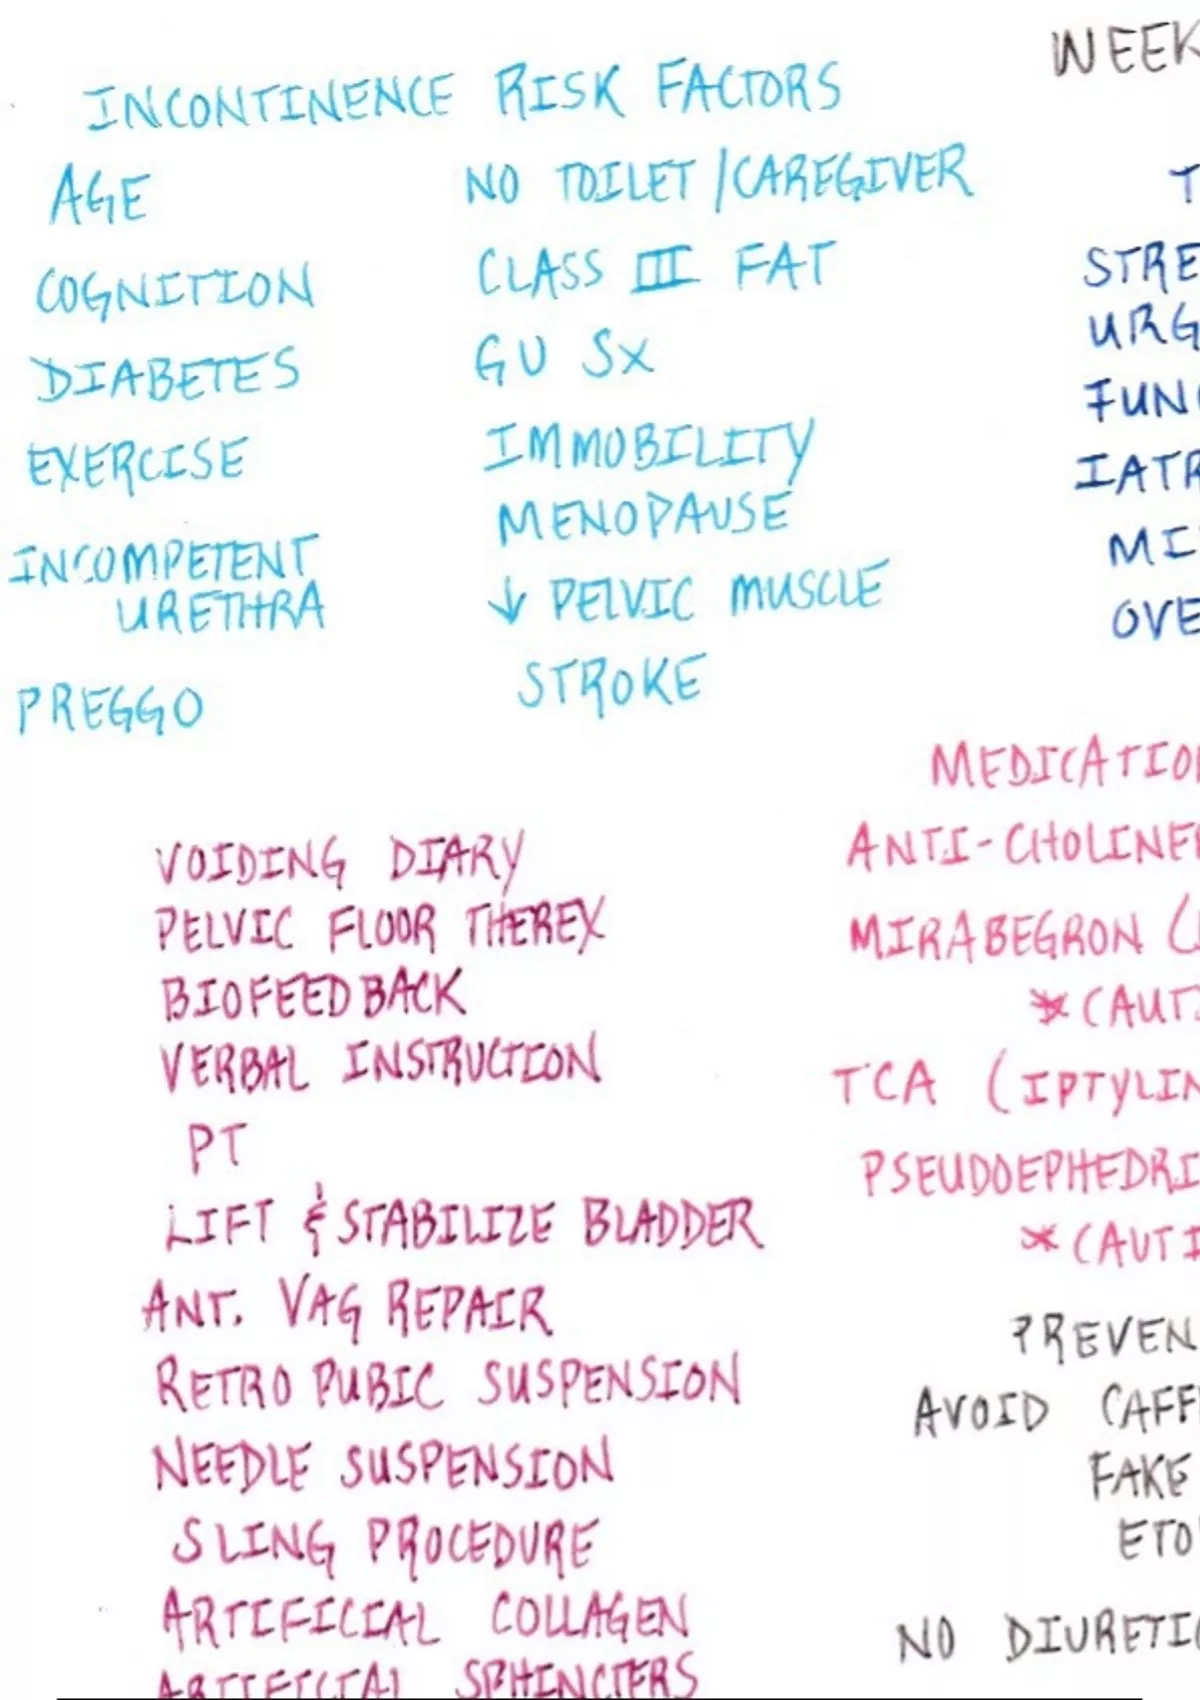 INCONTINENCE RISK FACTORS
AGE
COGNITION
DIABETES
EXERCISE
INCOMPETENT
URETHRA
PREGGO
NO TOILET / CAREGIVER
CLASS III FAT
GU SX
IMMOBILITY
MENOPAUSE
↓ PELVIC MUSCLE
STROKE
WEEK
T
STRE
URG
FUNC
IATR
MI
OVE
VOIDING DIARY
PELVIC FLOOR THEREX
BIOFEEDBACK
VERBAL INSTRUCTION
PT
LIFT & STABILIZE BLADDER
ANT. VAG REPAIR
RETRO PUBIC SUSPENSION
NEEDLE SUSPENSION
SLING PROCEDURE
ARTIFICIAL COLLAGEN
ARTIFICIAL SPHINCTERS
MEDICATION
ANTI-CHOLINE
MIRABEGRON (
* CAUTI
TCA (IPTYLIN
PSEUDOEPHEDRI
* CAUTI
PREVEN
AVOID CAFF
FAKE
ETO
NO DIURETIC